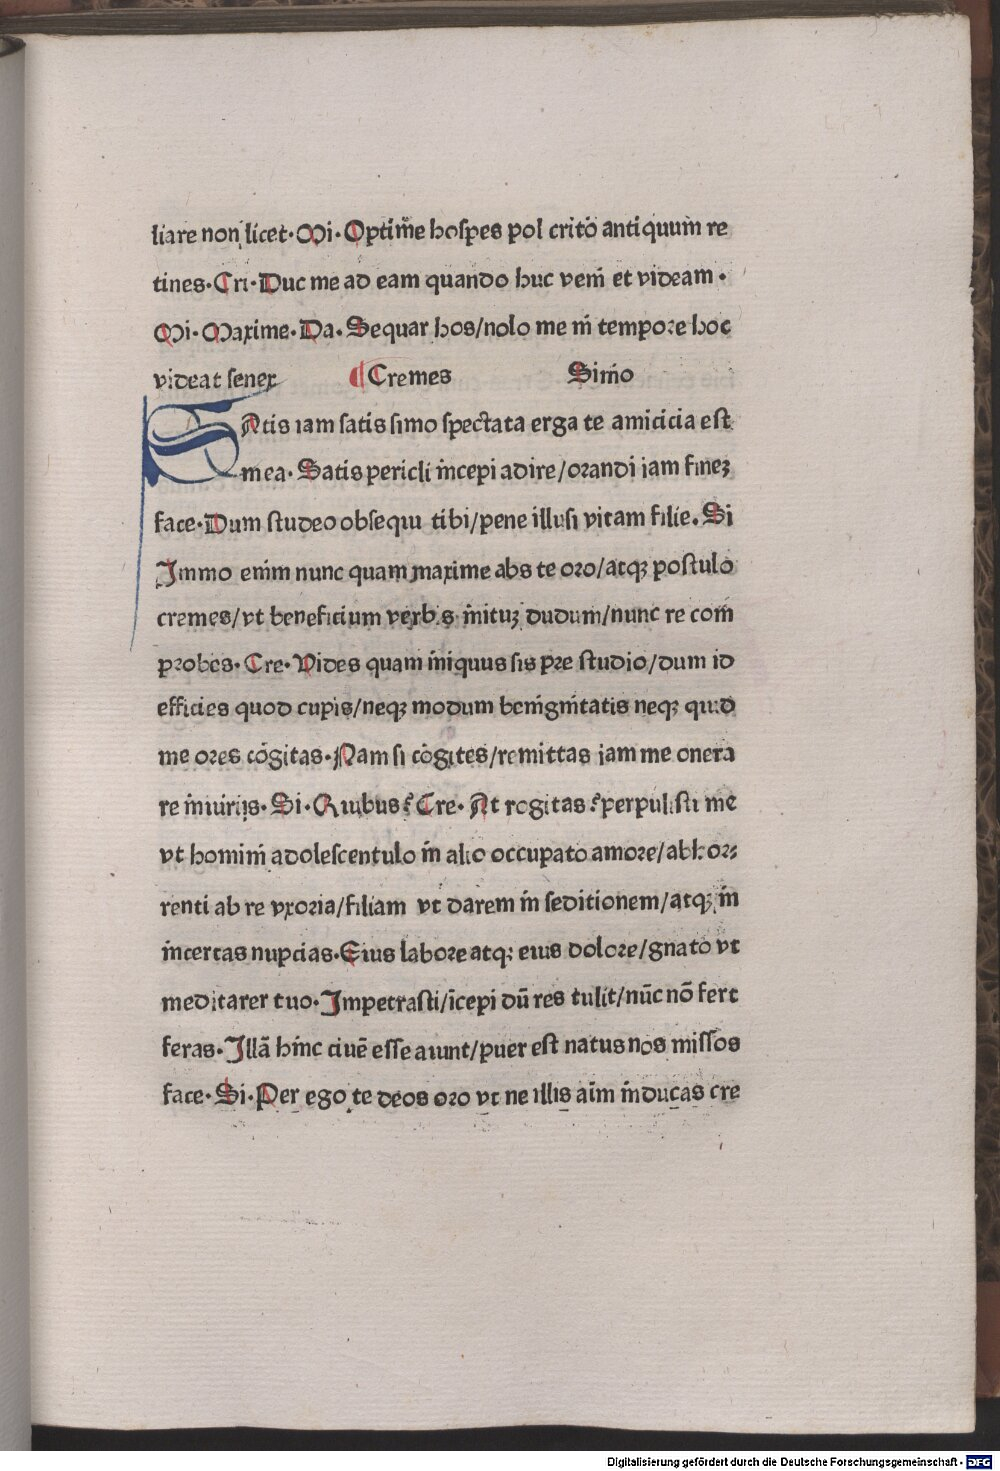 liare non licet·Mi·Optim̃e hoſpes pol crito antiquum re
tines·Cri·Duc me ad eam quando huc vem̃ et videam·
Mi·Maxime·Da·Sequar hos/nolo me m̃ tempore hoc
videat ſenex ¶Cremes Sim̃o
SAtis iam ſatis ſimo ſpectata erga te amicicia eſt
mea·Satis pericli m̃cepi adire/orandi iam fineʒ
face·Dum ſtudeo obſequi tibi/pene illuſi vitam filie·Si
Immo em̃m nunc quam maxime abs te oro/atqʒ poſtulo
cremes/vt beneficium verbis m̃ituʒ dudum/nunc re com̃
probes·Cre·Vides quam m̃iquus ſis pre ſtudio/dum id
efficies quod cupis/neqʒ modum bem̃gm̃tatis neqʒ quid
me ores cōgitas·Nam ſi cōgites/remittas iam me onera
re m̃iurijs·Si·Quibus? Cre·At rogitas? perpuliſti me
vt homim̃ adoleſcentulo m̃ alio occupato amore/abhor⸗
renti ab re vxoria/filiam vt darem m̃ ſeditionem/atqʒ m̃
m̃certas nupcias·Eius labore atqʒ eius dolore/gnato vt
meditarer tuo·Impetraſti/īcepi dū res tulit/nūc nō fert
feras·Illā hm̃c ciuē eſſe aiunt/puer eſt natus nos miſſos
face·Si·Per ego te deos oro vt ne illis aīm m̃ducas cre
Digitalisierung gefördert durch die Deutsche Forschungsgemeinschaft · DFG